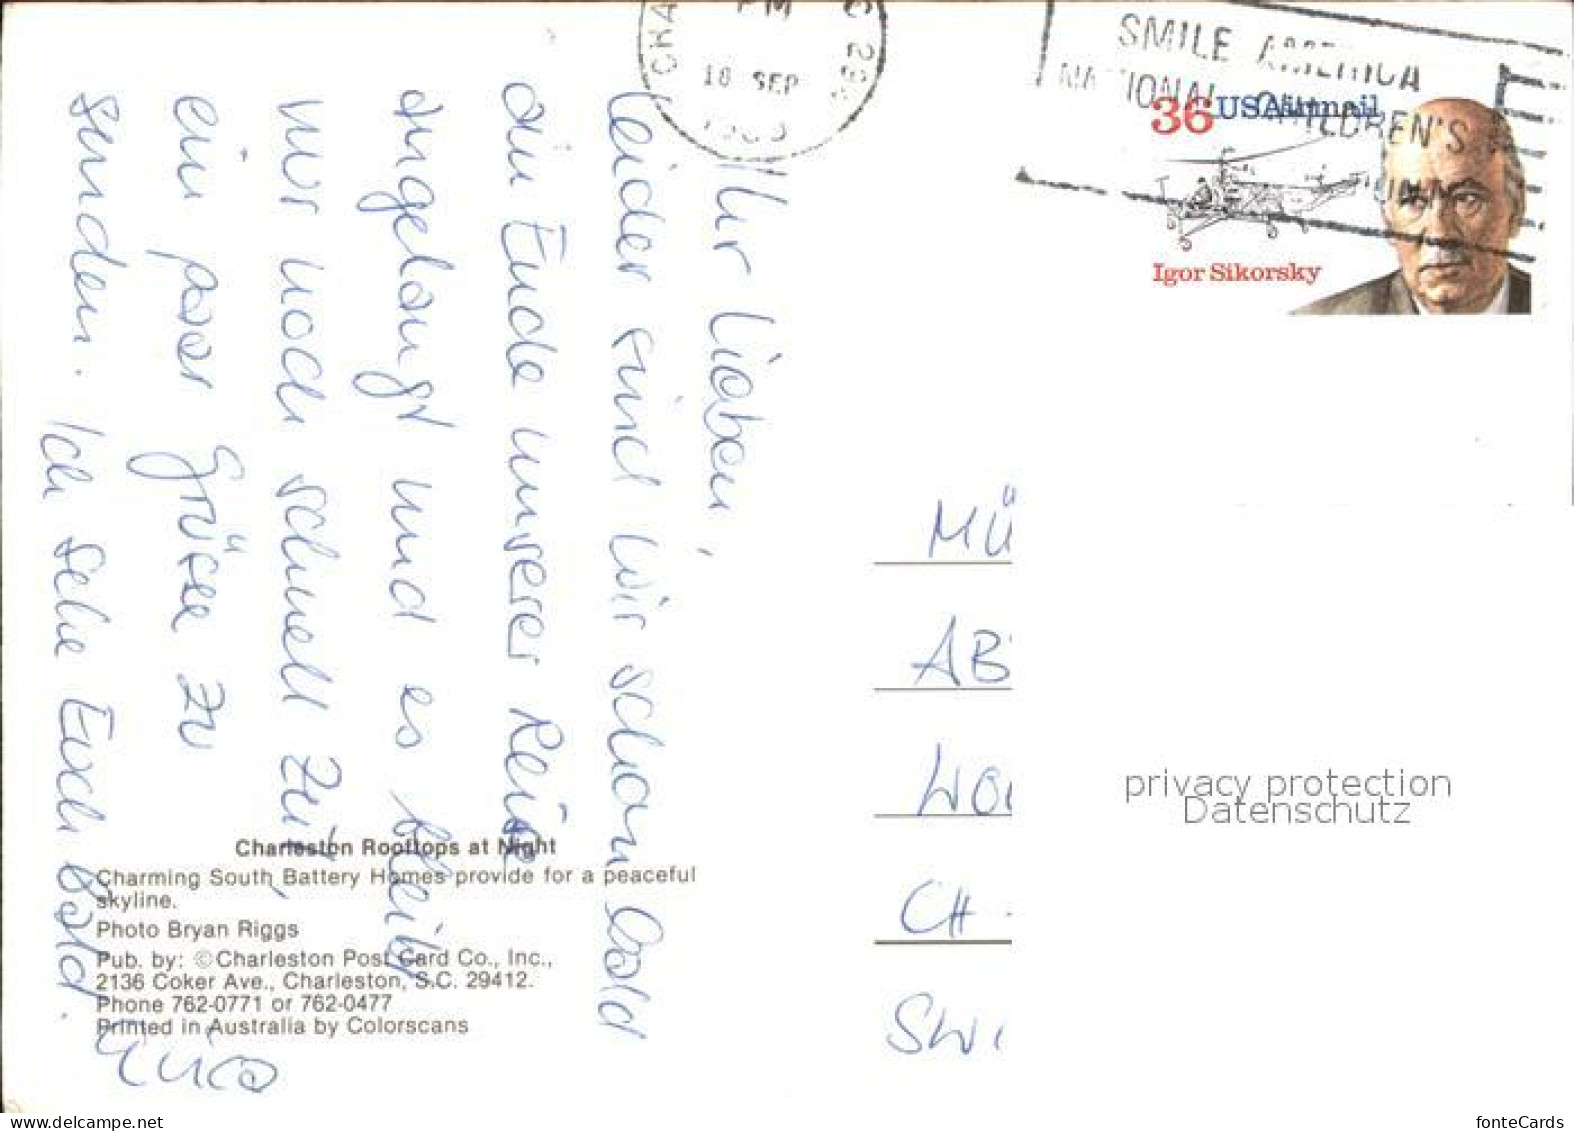 Ihr Lieben,
leider sind wir schon bald
am Ende unserer Reise
angelangt und es bleibt
mir noch schnell Zeit,
ein paar Grüsse zu
senden. Ich sehe Euch bald.
Charleston Rooftops at Night
Charming South Battery Homes provide for a peaceful
skyline.
Photo Bryan Riggs
Pub. by: ©Charleston Post Card Co., Inc.,
2136 Coker Ave., Charleston, S.C. 29412.
Phone 762-0771 or 762-0477
Printed in Australia by Colorscans
CHA
PM
18 SEP
SMILE AMERICA
NATIONAL CHILDREN'S
36 USAirmail
Igor Sikorsky
MÜ
AB
WO
CH -
SWI
privacy protection
Datenschutz
www.delcampe.net
fonteCards